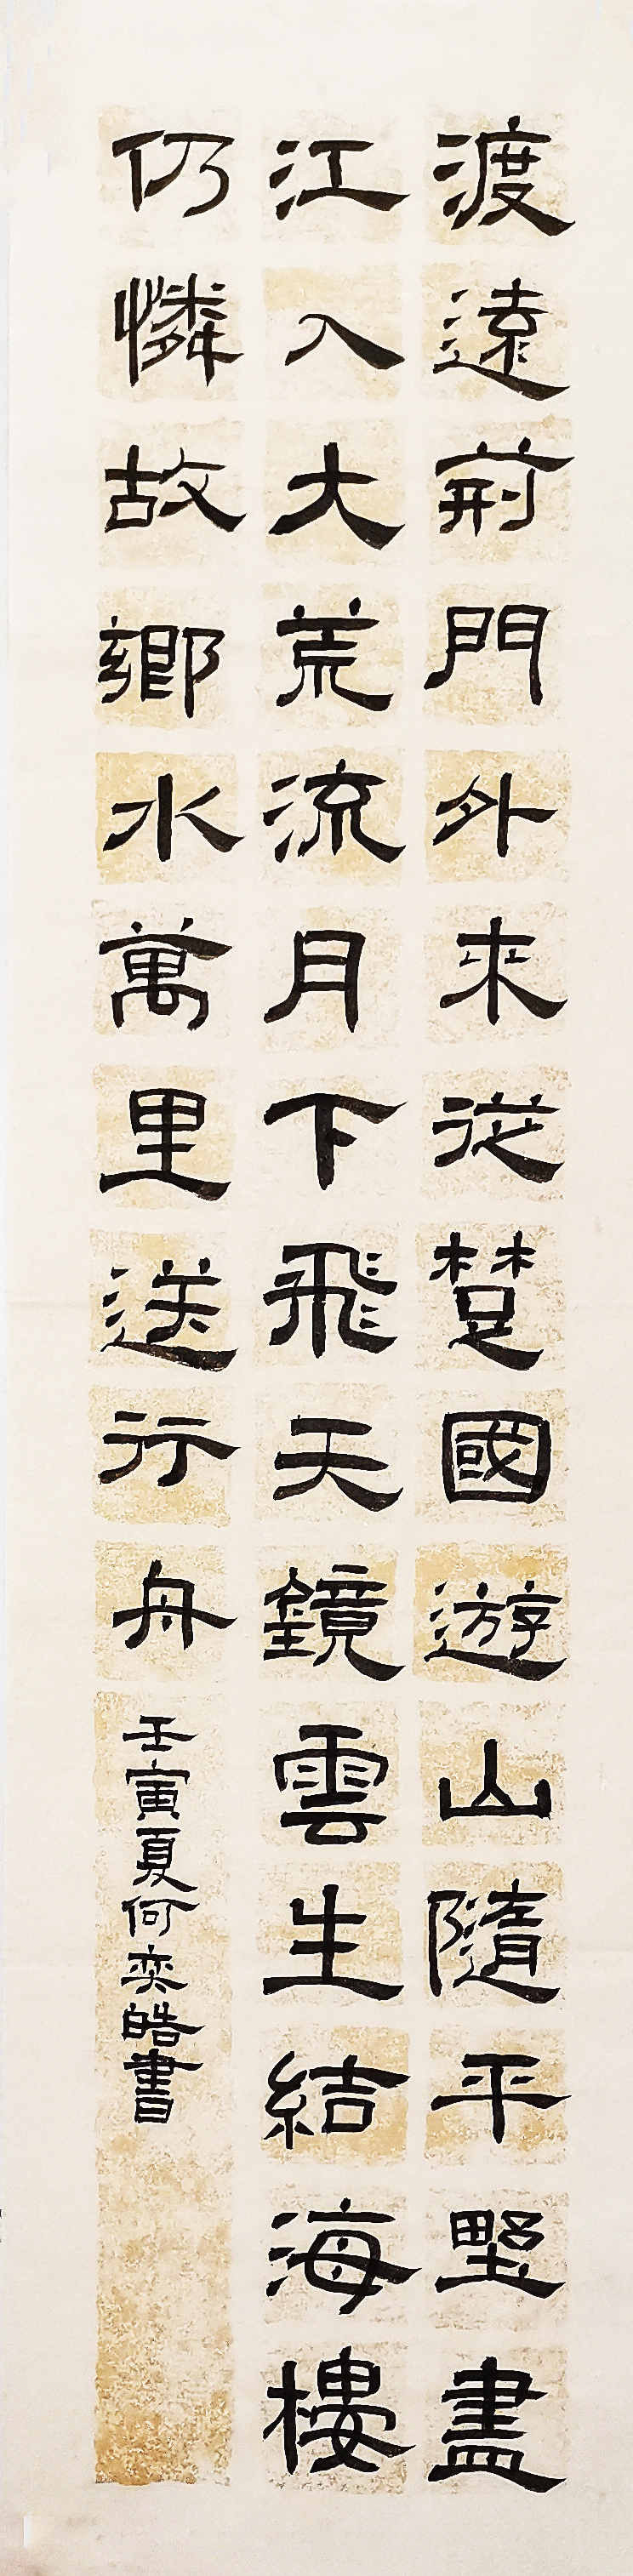 渡遠荊門外來從楚國遊山隨平野盡
江入大荒流月下飛天鏡雲生結海樓
仍憐故鄉水萬里送行舟
壬寅夏何奕皓書